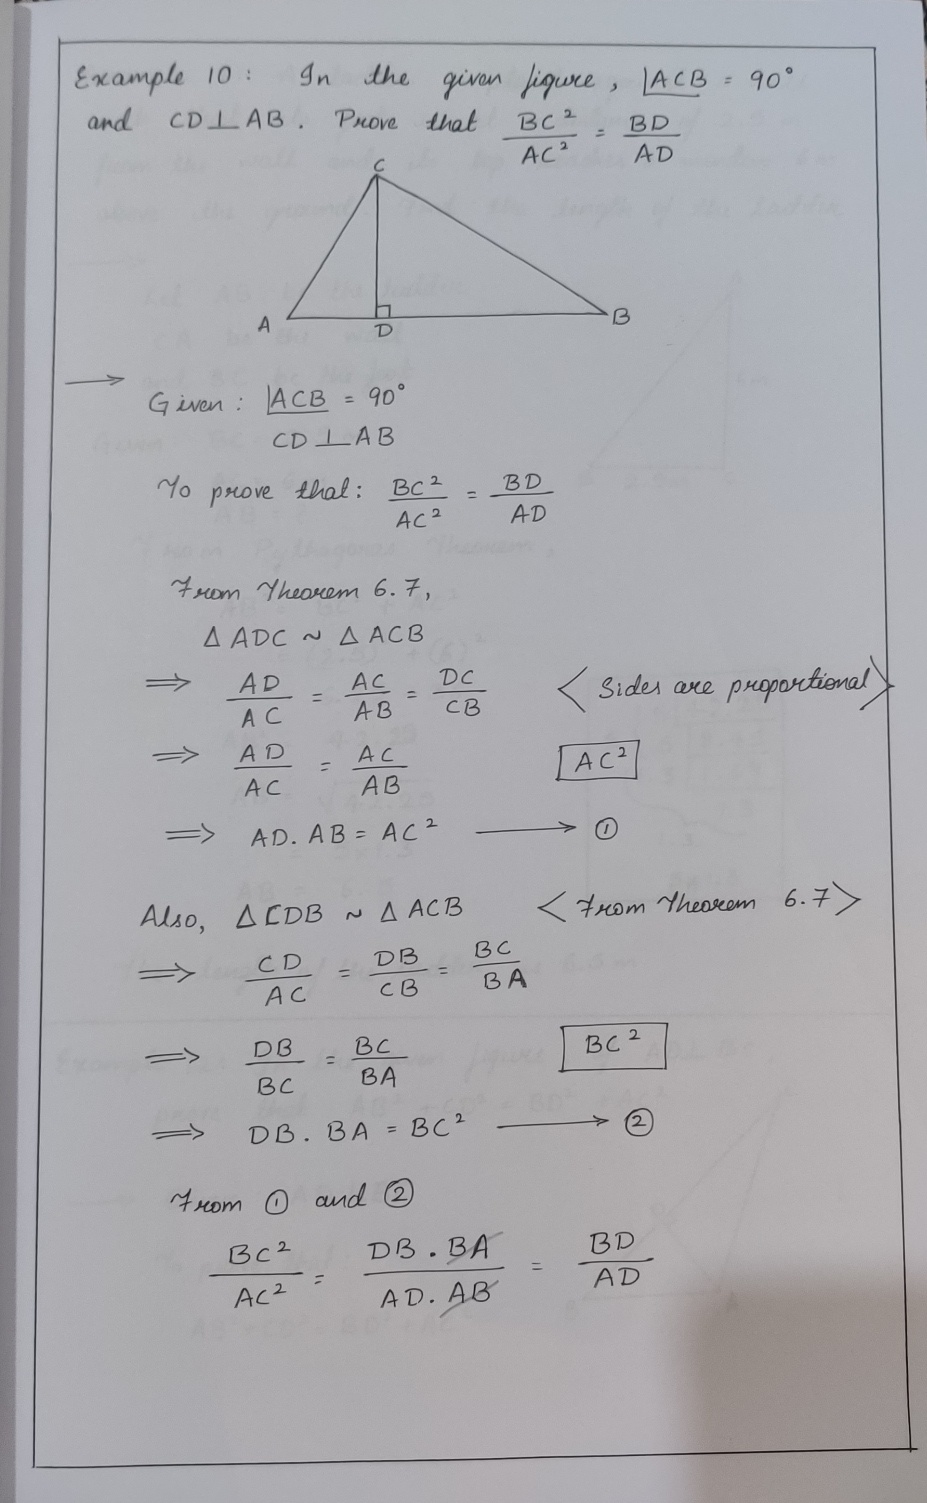 Example 10 : In the given figure, ∠ACB = 90°
and CD ⊥ AB. Prove that BC²/AC² = BD/AD
C
A D B
→ Given : ∠ACB = 90°
CD ⊥ AB
To prove that : BC²/AC² = BD/AD
From Theorem 6.7,
Δ ADC ~ Δ ACB
⇒ AD/AC = AC/AB = DC/CB < Sides are proportional >
⇒ AD/AC = AC/AB AC²
⇒ AD. AB = AC² → ①
Also, Δ CDB ~ Δ ACB < From Theorem 6.7 >
⇒ CD/AC = DB/CB = BC/BA
⇒ DB/BC = BC/BA BC²
⇒ DB . BA = BC² → ②
From ① and ②
BC²/AC² = DB . BA/AD. AB = BD/AD